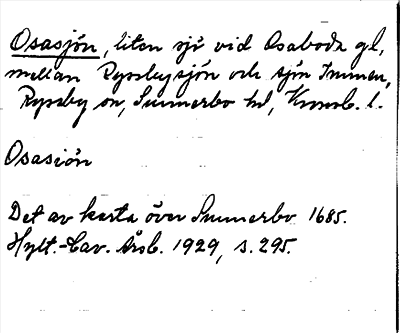 Osasjön, liten sjö vid Osaboda gl,
mellan Ryssbysjön och sjön Immen,
Ryssby sn, Sunnerbo hd, Kronob. l.
Osasiön
Det av karta över Sunnerbo 1685.
Hylt.-Cav. Årsb. 1929, s. 295.